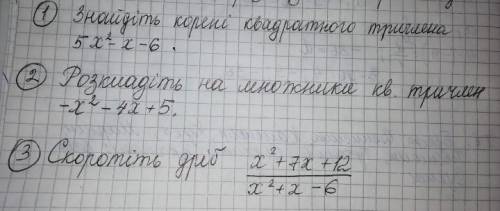 ① Знайдіть корені квадратного тричлена
5x² - x - 6 .
② Розкладіть на множники кв. тричлен
-x² - 4x + 5.
③ Скоротіть дріб x² + 7x + 12 / x² + x - 6